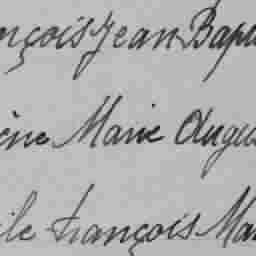 nçois Jean Bap
ène Marie Augus
ile François Mar